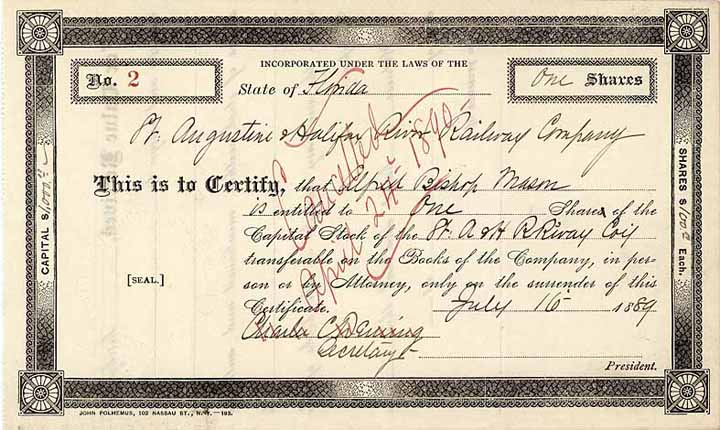 INCORPORATED UNDER THE LAWS OF THE
No. 2
State of Florida
One Shares
St. Augustine & Halifax River Railway Company
This is to Certify, that Alfred Bishop Mason
is entitled to One Share of the
Capital Stock of the St. A & H R Riway Coy
transferable on the Books of the Company, in per-
son or by Attorney, only on the surrender of this
Certificate. July 16 1889
Charles C Deming
Secretary
President.
[SEAL.]
Cancelled
April 24 1890
CAPITAL $1,000
SHARES $100 Each.
JOHN POLHEMUS, 102 NASSAU ST., N.Y.